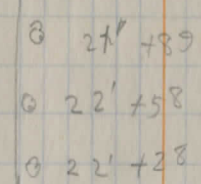 21' +89
22' +58
22' +28